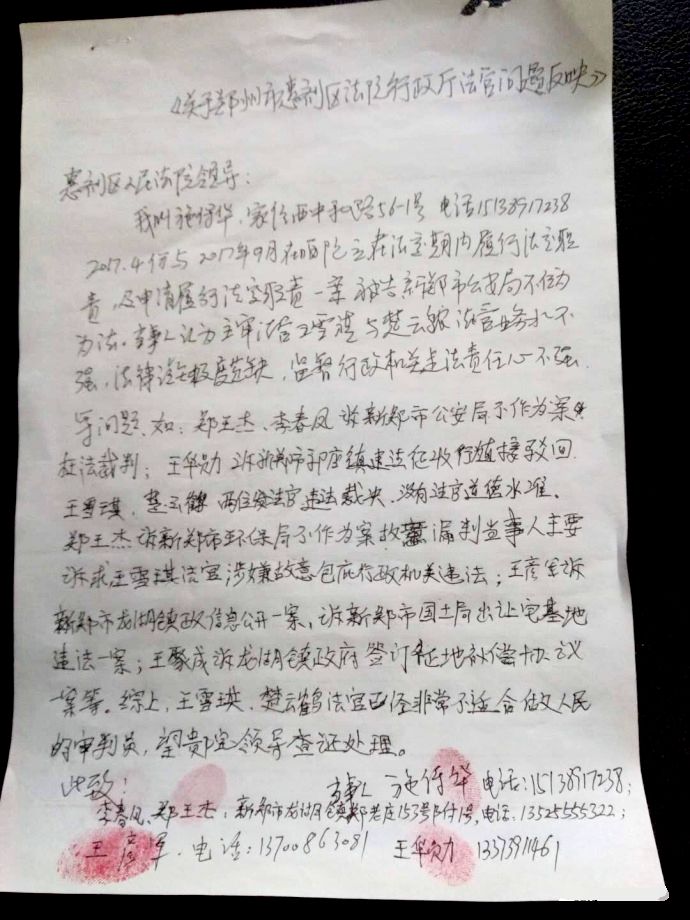 《关于郑州市惠济区法院行政厅法官问题反映》
惠济区人民法院领导:
我叫施得华,家住西中和路56-1号 电话15138917238
2017.4份与2017年9月在贵院立在法定期内履行法定职
责,及申请履行法定职责一案 被告新郑市公安局不作为
为法。当事人认为主审法官王雪琪与楚云鹤法官业务水不
强,法律法极度欠缺,监督行政机关违法责任心不强
等问题、如:郑王杰、李春凤诉新郑市公安局不作为案
枉法裁判;王华勋诉新郑市郭店镇违法征收行直接驳回
王雪琪、楚云鹤两位女法官违法裁决,没有法官道德水准。
郑王杰诉新郑市环保局不作为案故意漏判当事人主要
诉求王雪琪法官涉嫌故意包庇行政机关违法;王彦军诉
新郑市龙湖镇政信息公开一案,诉新郑市国土局出让宅基地
违法一案;王聚成诉龙湖镇政府签订征地补偿协议
一案等。综上,王雪琪、楚云鹤法官已经非常不适合做人民
的审判员,望贵院领导查证处理。
此致: 当事人 施得华 电话:15138917238;
李春凤、郑王杰,新郑市龙湖镇郑老庄153号附1号,电话:13525555322;
王彦军.电话:13700863081 王华勋 13373911461